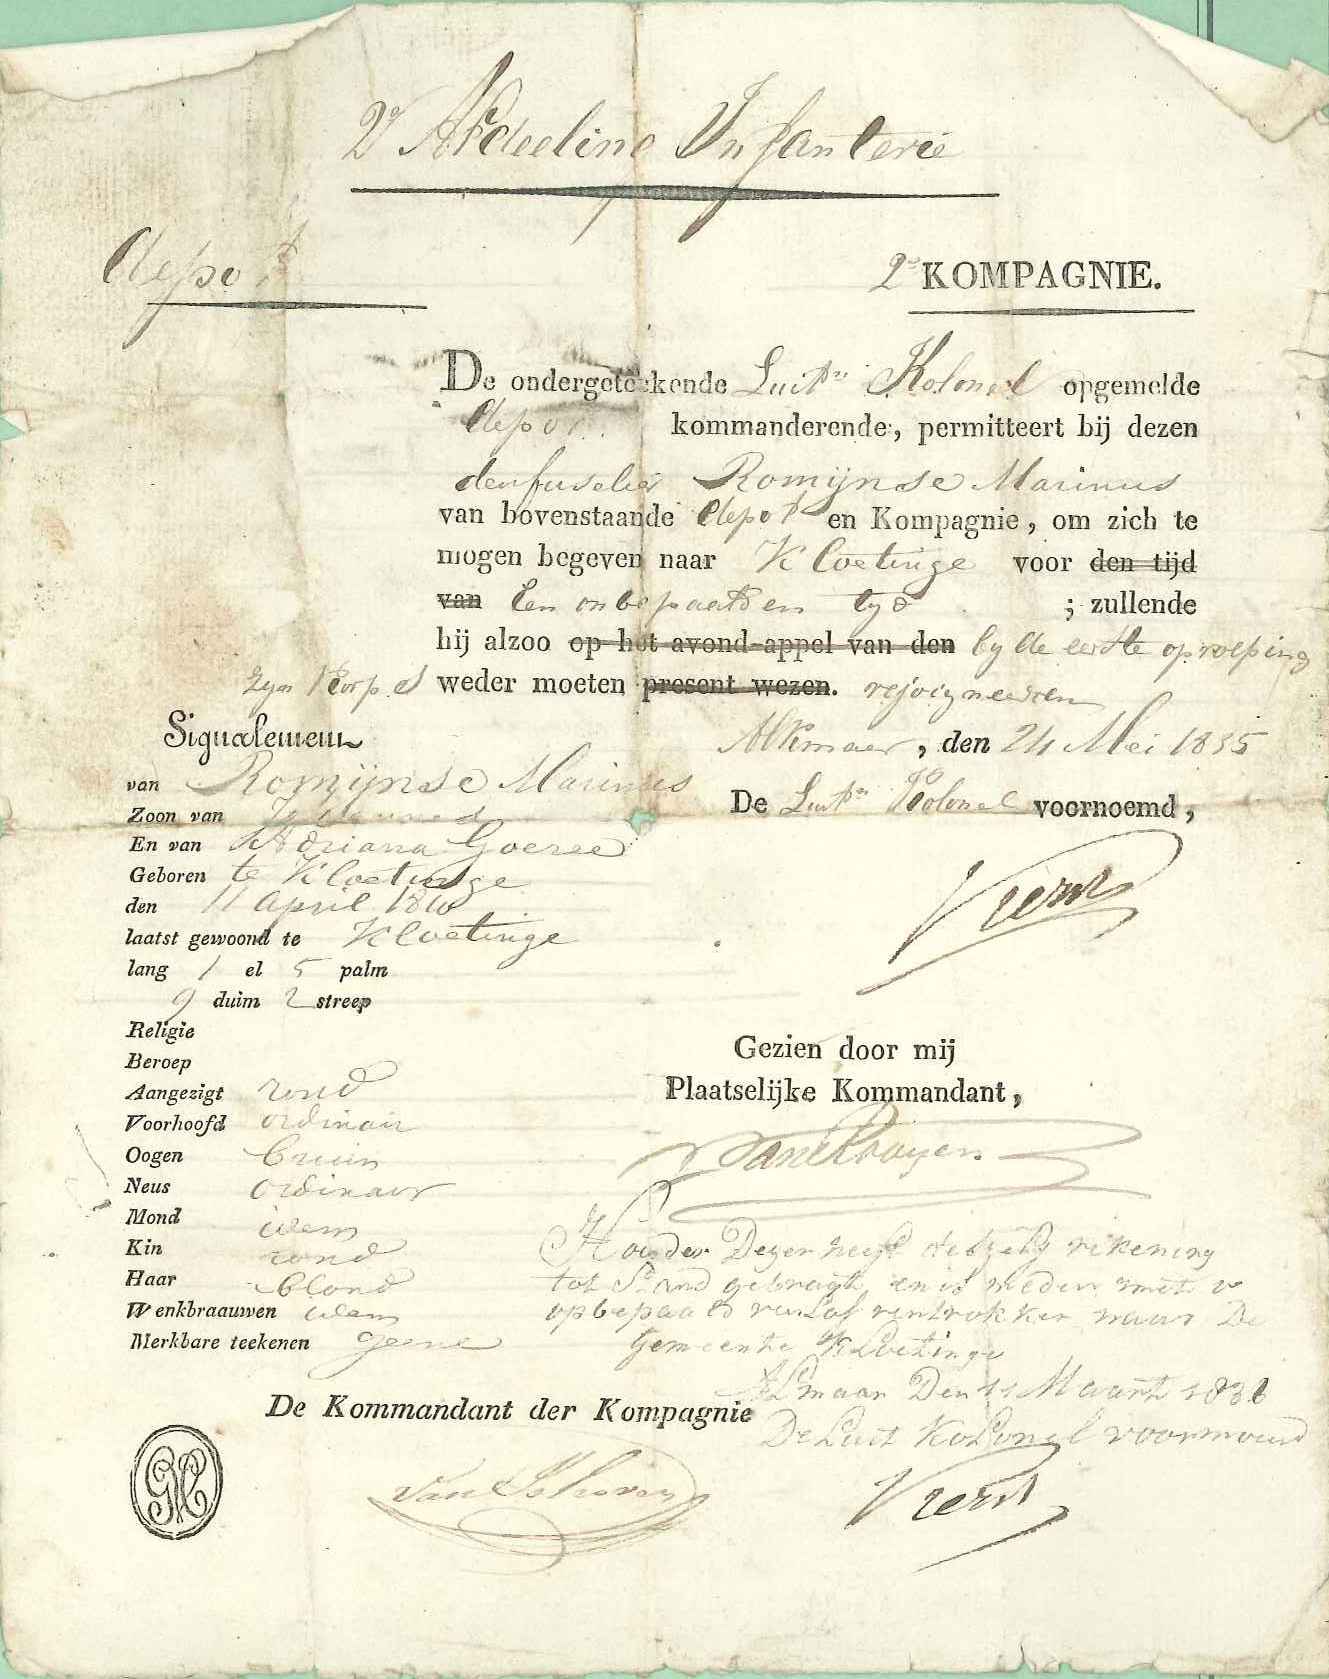 2e Afdeeling Infanterie
depot
2e KOMPAGNIE.
De ondergeteekende Luitn Kolonel opgemelde
depot kommanderende, permitteert bij dezen
den fuselier Romijnse Marinus
van bovenstaande depot en Kompagnie, om zich te
mogen begeven naar Kloetinge voor den tijd
van Een onbepaalden tyd ; zullende
hij alzoo op het avond-appel van den by de eerste oproeping
zyn Korps weder moeten present wezen. rejoigneeren
Alkmaer, den 24 Mei 1835
De Luitn Kolonel voornoemd,
Signalement
van Romijnse Marinus
Zoon van
En van Adriana Goeree
Geboren te Kloetinge
den 11 April 18
laatst gewoond te Kloetinge
lang 1 el 5 palm
9 duim 2 streep
Religie
Beroep
Aangezigt rond
Voorhoofd ordinair
Oogen bruin
Neus ordinair
Mond idem
Kin rond
Haar blond
Wenkbraauwen idem
Merkbare teekenen geene
Gezien door mij
Plaatselijke Kommandant,
Houder Dezer heeft rekening
tot gebragt en is met
onbepaald naar De
Gemeente Kloetinge
Alkmaar Den 11 Maart 1836
De Luit Kolonel voornoemd
De Kommandant der Kompagnie